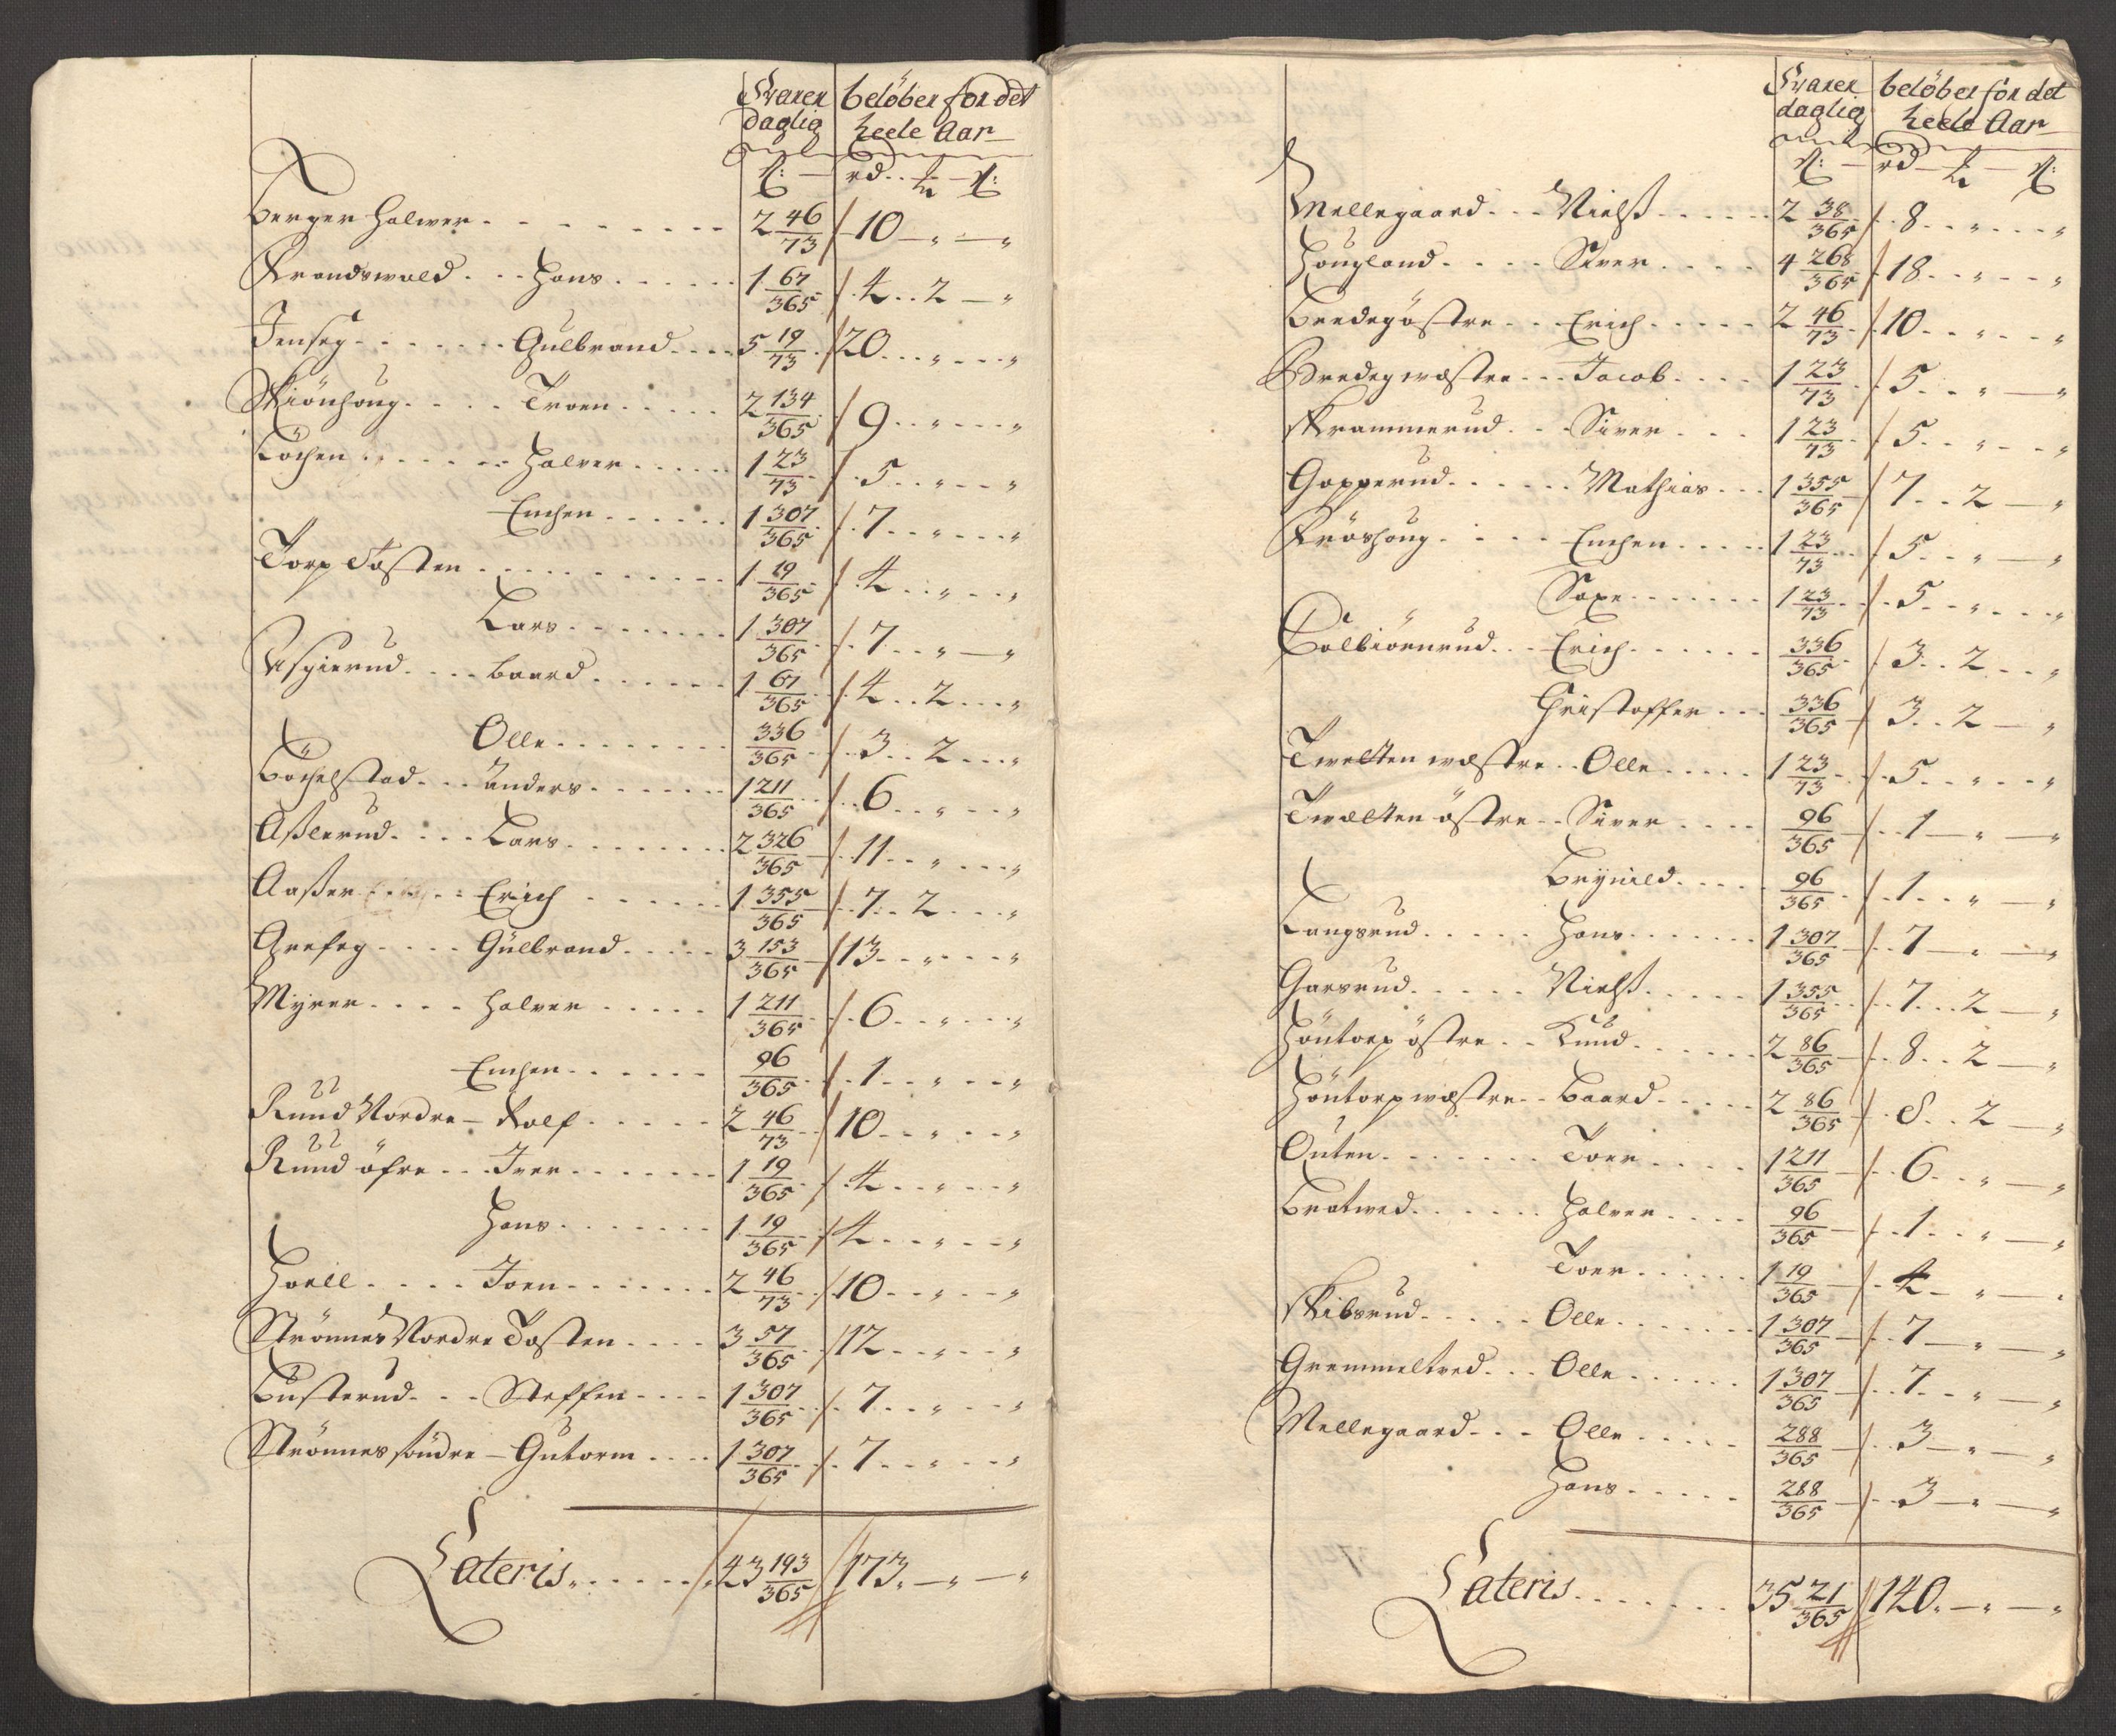 Svarer daglig | beløber for det heele Aar
ß: — rd . . ₰ — ß:
Berger Halvor - - - - - - - - 2 46/73 / 10 — „ — „
Krandswold . . . Hans . . . . . . 1 67/365 / 4 . . 2 — „
Jenseg . . . . . . Gulbrand . . . . 5 19/73 / 20 . . „ . . . „
Skiönhoug . . . . Troen . . . . . 2 134/365 / 9 . . „ . . . „
Köchen . . . . . . Halvor . . . . . 1 23/73 / 5 . . „ . . „
Enchen . . . . . . 1 307/365 / 7 . . „ . . . „
Torp Tosten . . . . . . . . . . 1 19/365 / 4 . . „ . . „
Lars . . . . . . . . 1 307/365 / 7 . . „ — „
Asgierud . . . . Baard . . . . . . 1 67/365 / 4 . . 2 . . . „
Olle . . . . . . . . 336/365 / 3 . . 2 . . . „
Böchelstad . . . Anders . . . . . . 1 211/365 / 6 . . „ . . . „
Aßlerud . . . . Lars . . . . . . . . 2 326/365 / 11 . . „ . . . „
Aaßer . . . . . Erich . . . . . . 1 355/365 / 7 . . 2 . . . „
Grefseg . . . . Gulbrand . . . . . 3 153/365 / 13 . . „ . . . „
Myrer . . . . Halvor . . . . . 1 211/365 / 6 . . „ . . . „
Enchen . . . . . . 96/365 / 1 . . „ . . . „
Ruud Nordre — Rolf . . . . . 2 46/73 / 10 . . „ . . . „
Ruud öfre . . . Iver . . . . . . . 1 19/365 / 4 . . „ . . . „
Hans . . . . . . . 1 19/365 / 4 . . „ . . . „
Hoell . . . . Joen . . . . . . . 2 46/73 / 10 . . „ . . . „
Strömnes Nordre Tosten . . . . 3 57/365 / 12 . . „ . . . „
Busterud . . . Steffen . . . . 1 307/365 / 7 . . „ . . . „
Strömnes söndre — Gutorm . . . . 1 307/365 / 7 . . „ . . . „
Lateris . . . . . . . 43 193/365 // 173 . — „ — „
Svarer daglig | beløber for det heele Aar
ß: — rd — ₰ — ß:
Mellegaard . . . Nielß . . . . . . 2 38/365 / 8 . . „ . . . „
Hougland . . . . Siver . . . . 4 268/365 / 18 . . „ . . . „
Bredeg östre . . . Erich . . . . . 2 46/73 / 10 . . „ . . . „
Bredeg wæstre . . . Jacob . . . . 1 23/73 / 5 . . „ — „
Skrammerud . . . Siver . . . 1 23/73 / 5 . . „ . . . „
Gopperud . . . . . . Mathias . . . 1 355/365 / 7 . . 2 — „
Kröshoug . . . . Enchen . . . . . 1 23/73 / 5 . . „ — „
Saxe . . . . . . . 1 23/73 / 5 . . „ . . . „
Colbiörnrud . . . Erich . . . . . . 336/365 / 3 . . 2 . . . „
Christoffer . . . 336/365 / 3 . . 2 — „
Twetten wæstre . . Olle . . . . . 1 23/73 / 5 . . „ . . . „
Twætten östre . . Siver . . . . 96/365 / 1 — „ — „
Brynild . . . . 96/365 / 1 . . „ — „
Langsrud . . . . . Hans . . . . . . . 1 307/365 / 7 — „ — „
Garsrud . . . . . Nielß . . . . . 1 355/365 / 7 . . 2 — „
Höntorp östre . . Knud . . . . . . 2 86/365 / 8 . . 2 — „
Höntorp wæstre . . Baard . . . . . 2 86/365 / 8 . . 2 — „
Outen . . . . . . . Toer . . . . 1 211/365 / 6 . . „ — „
Bratved . . . . . . Halvor . . . . 96/365 / 1 . . „ — „
Toer . . . . . . 1 19/365 / 4 — „ — „
Skibsrud . . . . . Olle . . . . . . . 1 307/365 / 7 — „ — „
Gremmeltved . . . Olle . . . . . . 1 307/365 / 7 . . „ — „
Mellegaard . . . Olle . . . . . 288/365 / 3 — „ — „
Hans . . . . . 288/365 / 3 — „ — „
Lateris . . . . . . . 35 21/365 // 140 . — „ — „